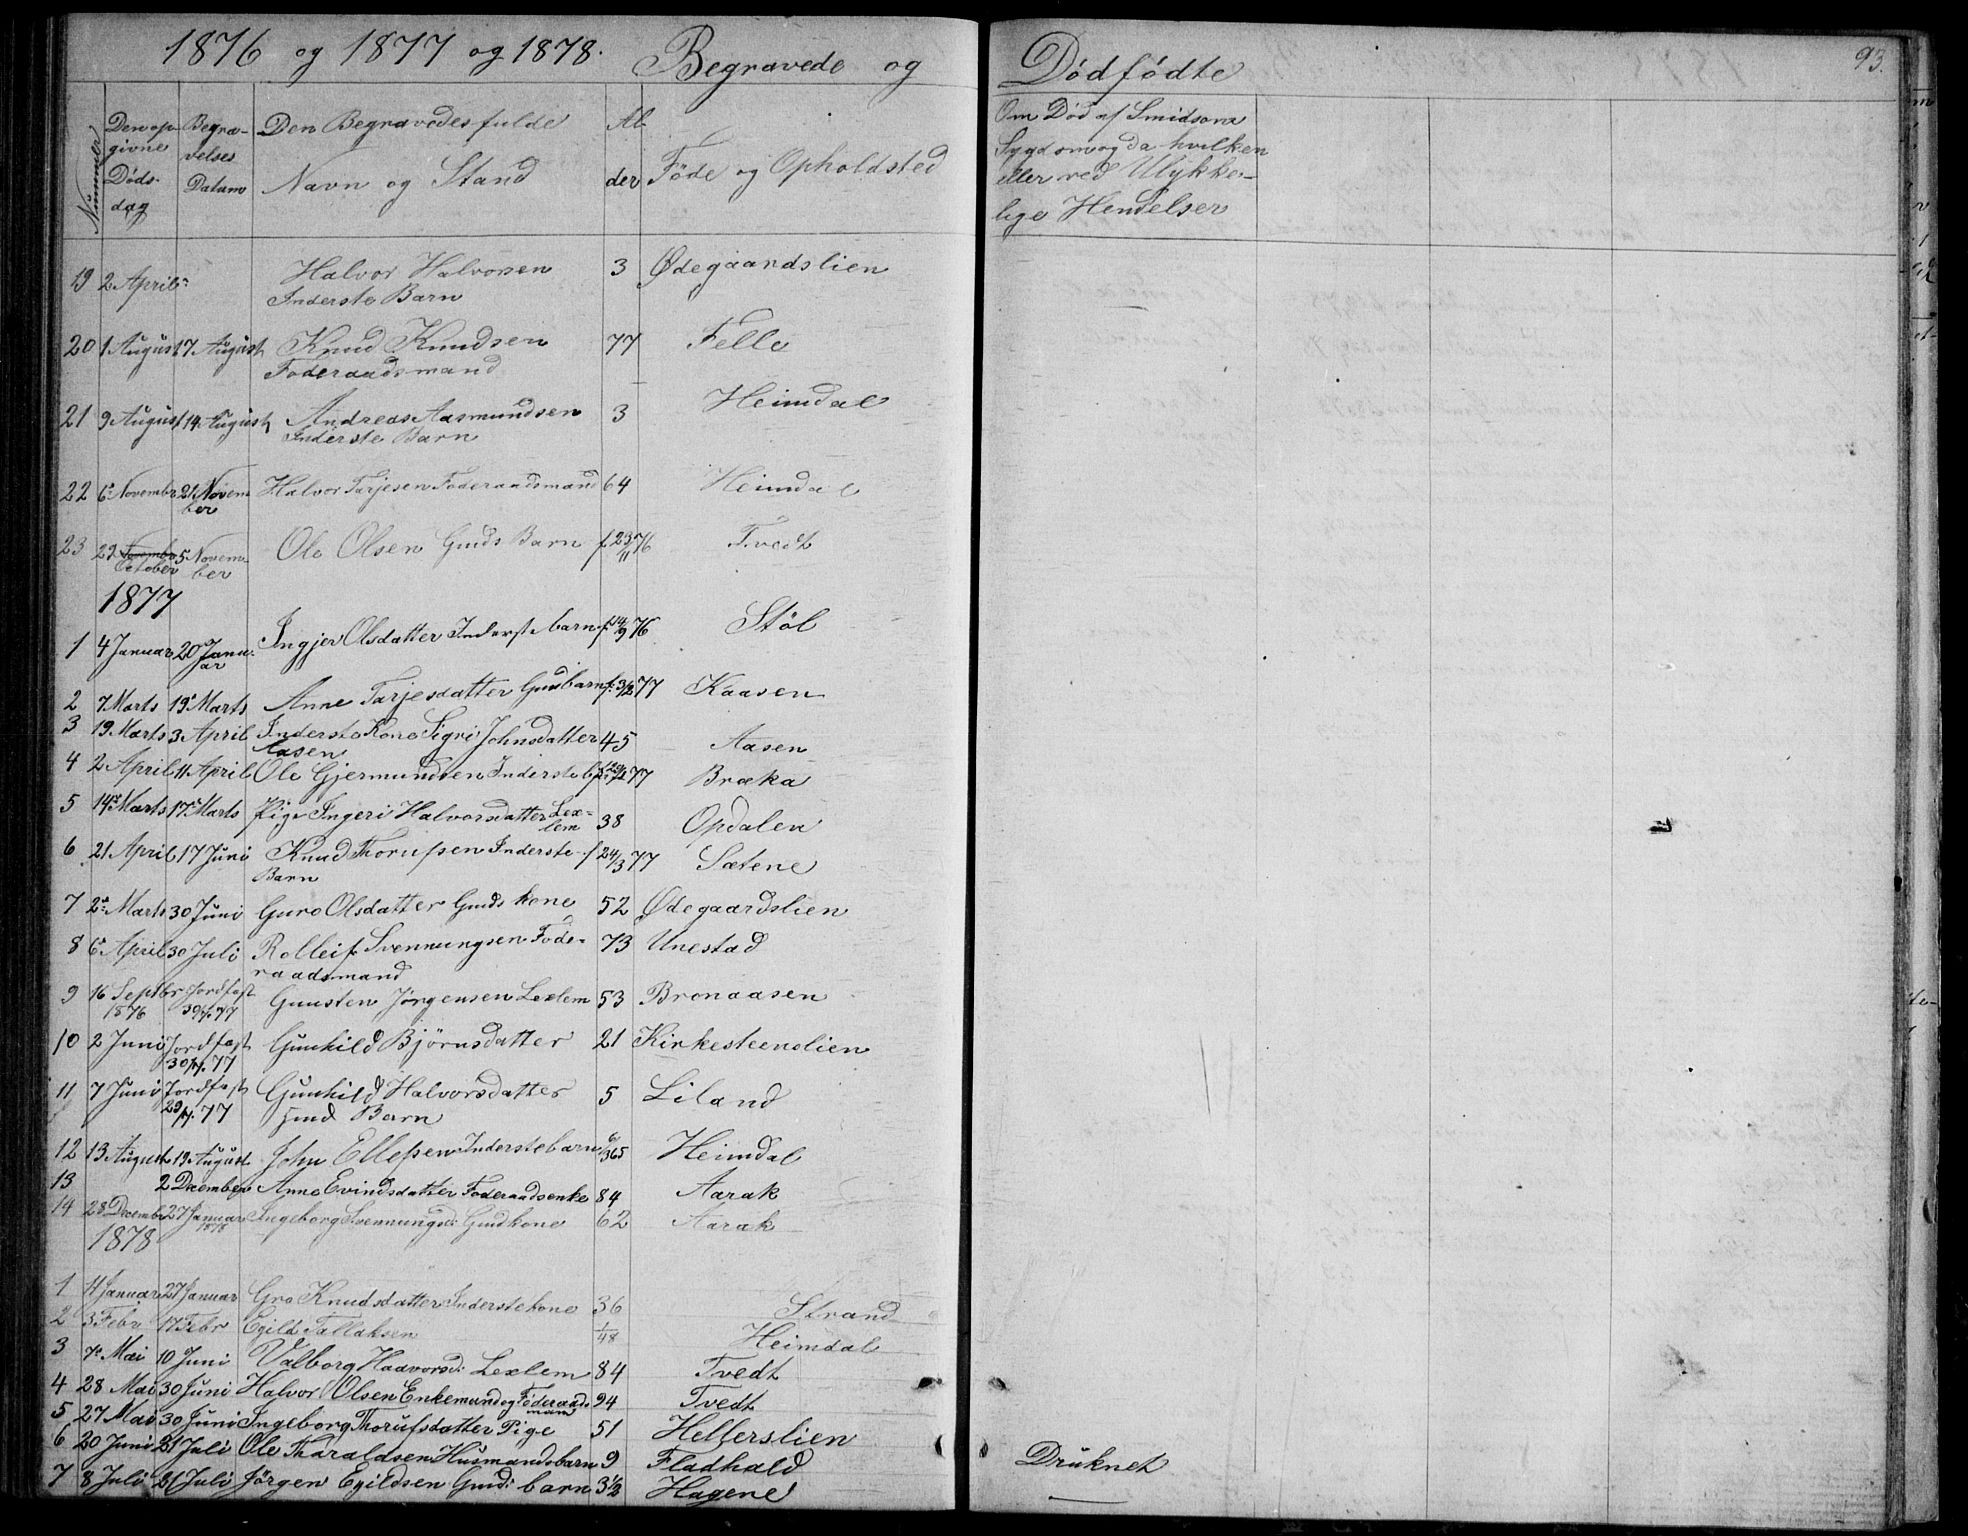 1876 og 1877 og 1878. Begravede og Dödfödte 93.
Nummer
Den op-
givne
Döds-
dag
Begra-
velses
Datum
Den Begravedes fulde
Navn og Stand
Al-
der
Föde og Opholdsted
Om Död af Smidsom
Sygdom og da hvilken
eller ved Ulykke-
lige Hendelser
19 2 April Halvor Halvorsen 3 Ødegaardslien
Inderste Barn
20 1 August 7 August Knud Knudsen 77 Felle
Foderaadsmand
21 9 August 14 August Andreas Aasmundsen 3 Heimdal
Inderste Barn
22 6 Novembr 21 Novem- Halvor Tarjesen Foderaadsmand 64 Heimdal
ber
23 29 Novembr 5 Novem- Ole Olsen Gmds Barn f. 23/11 76 Tvedt
October ber
1877
1 4 Januar 20 Janu- Ingjer Olsdatter Inderste barn f. 14/9 76 Stöl
ar
2 7 Marts 19 Marts Anne Tarjesdatter Gmdbarn f. 3/2 77 Kaasen
3 19 Marts 3 April Inderste Kone Sigri Johnsdatter 45 Aasen
Aasen
4 2 April 11 April Ole Gjermundsen Inderste 77 Bræka
5 14 Marts 17 Marts Pige Ingeri Halvorsdatter Lex- 38 Opdalen
lem
6 21 April 17 Juni Knud Thorufsen Inderste f 24/3 77 Sætene
Barn
7 2 Marts 30 Juni Guro Olsdatter Gmds kone 52 Ødegaardslien
8 6 April 30 Juli Rolleif Svennungsen Fode- 73 Unestad
raadsmand
9 16 Septbr Jordfast Gunsten Jörgensen Lexlem 53 Bronaasen
1876 77
10 2 Juni Jordfast Gunhild Björnsdatter 21 Kirkesteenslien
77
11 7 Juni Jordfast Gunhild Halvorsdatter 5 Liland
77 Gmd Barn
12 13 August 19 August John Ellefsen Inderstebarn 6/365 Heimdal
13 2 December Anne Evindsdatter Foderaadsenke 84 Aarak
14 28 Decembr 27 Januar Ingeborg Svennungsd: Gmdkone 62 Aarak
1878
1878
1 14 Januar 27 Januar Gro Knudsdatter Inderstekone 36 Strand
2 3 Febr 17 Febr Egild Tallaksen 1/48 Heimdal
3 7 Mai 10 Juni Valborg Haavorsd: Lexlem 84 Tvedt
4 28 Mai 30 Juni Halvor Olsen Enkemand og Föderaads 94 Tvedt
mand
5 27 Mai 30 Juni Ingeborg Thorufsdatter Pige 51 Hellerslien
6 20 Juni 21 Juli Ole Tharaldsen Husmandsbarn 9 Fladhald Druknet
7 8 Juli 21 Juli Jörgen Egildsen Gmd: barn 3½ Hagene